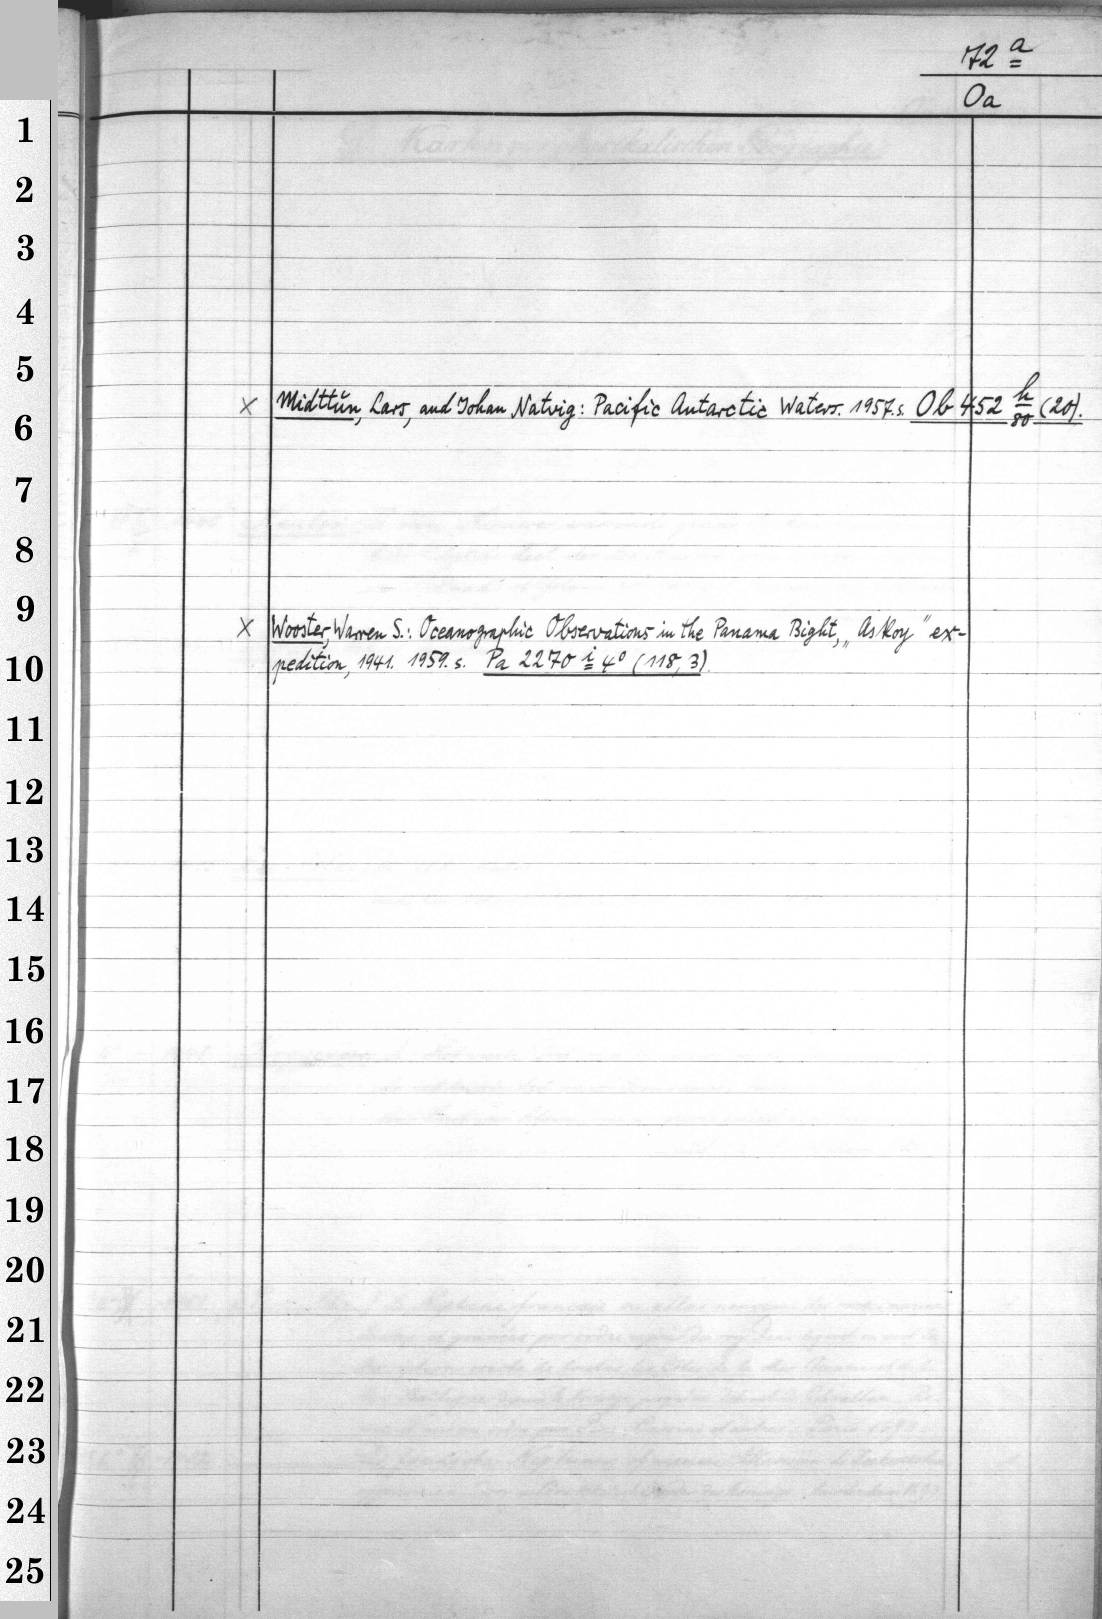 72 a
Oa
1
2
3
4
5
× Midttŭn, Lars, and Johan Natvig: Pacific Antarctic Waters. 1957. s. Ob 452 h/80 (20).
6
7
8
9
× Wooster, Warren S.: Oceanographic Observations in the Panama Bight, „Askoy" ex-
10 pedition, 1941. 1959. s. Pa 2270 i 4° (118, 3).
11
12
13
14
15
16
17
18
19
20
21
22
23
24
25